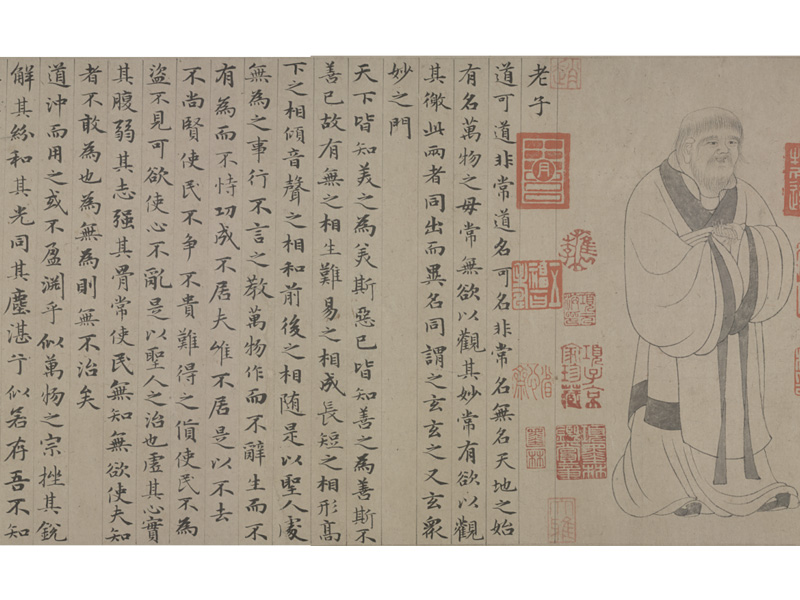 老子
道可道非常道名可名非常名無名天地之始
有名萬物之母常無欲以觀其妙常有欲以觀
其徼此兩者同出而異名同謂之玄玄之又玄衆
妙之門
天下皆知美之為美斯惡已皆知善之為善斯不
善已故有無之相生難易之相成長短之相形高
下之相傾音聲之相和前後之相随是以聖人處
無為之事行不言之教萬物作而不辭生而不
有為而不恃功成不居夫惟不居是以不去
不尚賢使民不争不貴難得之貨使民不為
盜不見可欲使心不亂是以聖人之治也虛其心實
其腹弱其志强其骨常使民無知無欲使夫知
者不敢為也為無為則無不治矣
道沖而用之或不盈淵乎似萬物之宗挫其銳
解其紛和其光同其塵湛兮似若存吾不知
項子京
家珍藏